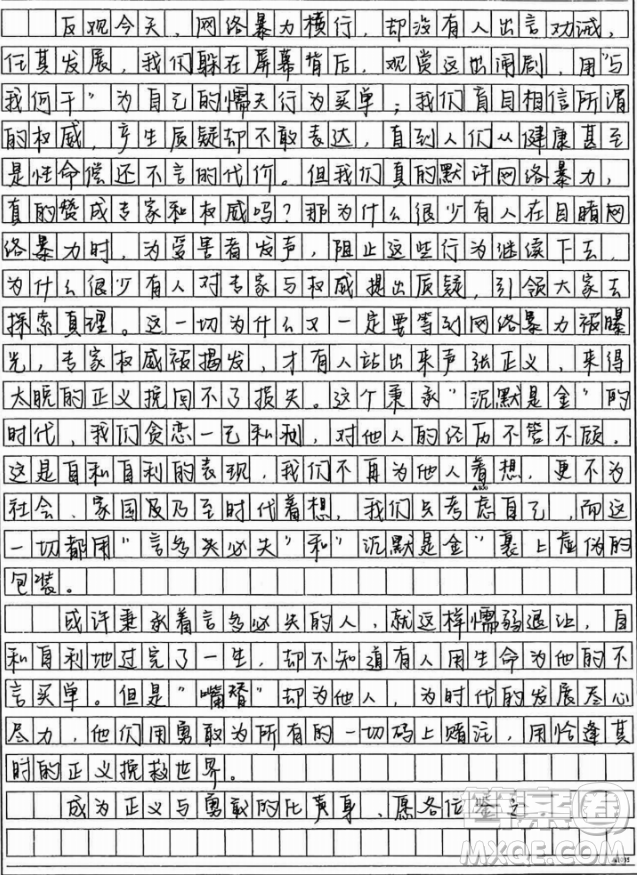 反观今天，网络暴力横行，却没有人出言劝诫，
任其发展，我们躲在屏幕背后，观赏这出闹剧，用“与
我何干”为自己的懦夫行为买单；我们盲目相信所谓
的权威，产生质疑却不敢表达，直到人们从健康甚至
是性命偿还不言的代价。但我们真的默许网络暴力，
真的赞成专家和权威吗？那为什么很少有人在目睹网
络暴力时，为受害者发声，阻止这些行为继续下去，
为什么很少有人对专家与权威提出质疑，引领大家去
探索真理。这一切为什么又一定要等到网络暴力被曝
光，专家权威被揭发，才有人站出来声张正义，来得
太晚的正义挽回不了损失。这个秉承“沉默是金”的
时代，我们贪恋一己私利，对他人的经历不管不顾。
这是自私自利的表现，我们不再为他人着想，更不为
社会、家国及乃至时代着想，我们只考虑自己，而这
一切都用“言多必失”和“沉默是金”裹上虚伪的
包装。
或许秉承着言多必失的人，就这样懦弱退让，自
私自利地过完了一生，却不知道有人用生命为他的不
言买单。但是“嘴替”却为他人，为时代的发展尽心
尽力，他们用勇敢为所有的一切码上赌注，用恰逢其
时的正义挽救世界。
成为正义与勇敢的化身，愿各位坚定
答案圈
MXQE.COM